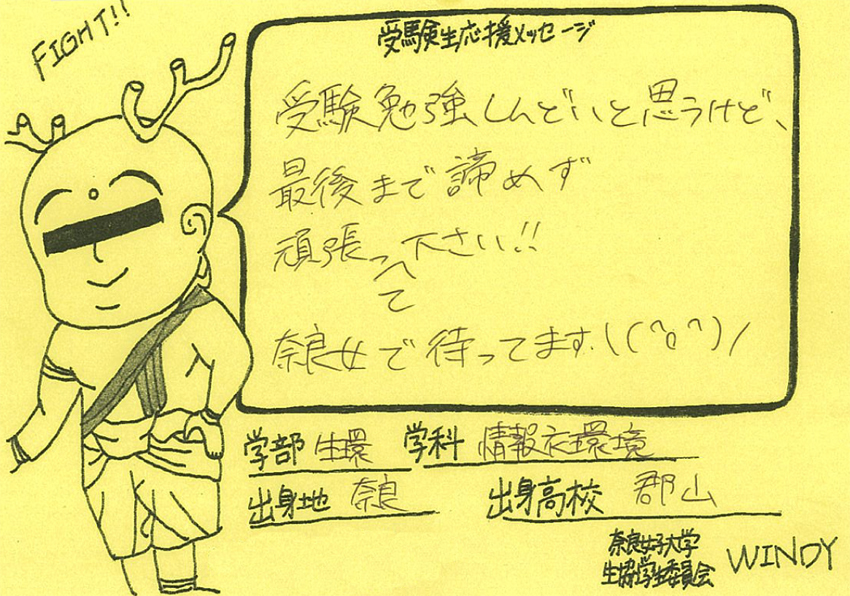 FIGHT!!
受験生応援メッセージ
受験勉強しんどいと思うけど、
最後まで諦めず
頑張って下さい!!
奈良女で待ってます\(^o^)/
学部 生環 学科 情報衣環境
出身地 奈良 出身高校 郡山
奈良女子大学
生協学生委員会 WINDY